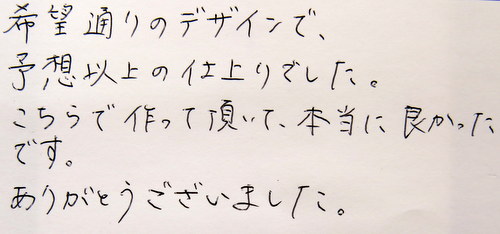 希望通りのデザインで、
予想以上の仕上りでした。
こちらで作って頂いて、本当に良かった
です。
ありがとうございました。